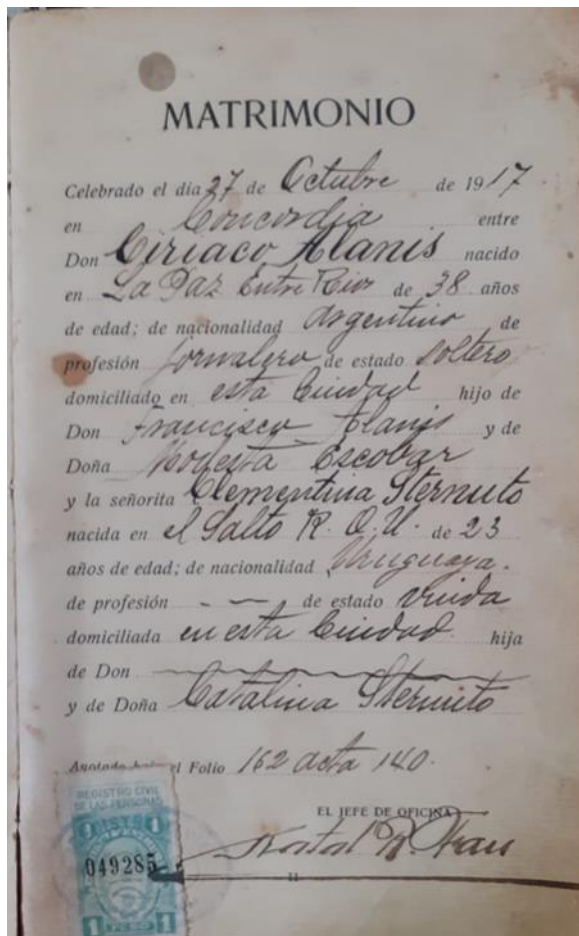 MATRIMONIO
Celebrado el dia 27 de Octubre de 1917
en Concordia entre
Don Ciriaco Alanis nacido
en La Paz Entre Rios de 38 años
de edad; de nacionalidad Argentino de
profesión Jornalero de estado Soltero
domiciliado en esta Ciudad hijo de
Don Francisco Alanis y de
Doña Modesta Escobar
y la señorita Clementina Sternuto
nacida en el Salto R. O. U. de 23
años de edad; de nacionalidad Uruguaya.
de profesión de estado Viuda
domiciliada en esta Ciudad hija
de Don
y de Doña Catalina Sternuto
Anotado bajo el Folio 162 acta 140.
REGISTRO CIVIL
DE LAS PERSONAS
EL JEFE DE OFICINA
049285
1 1
PESO
11